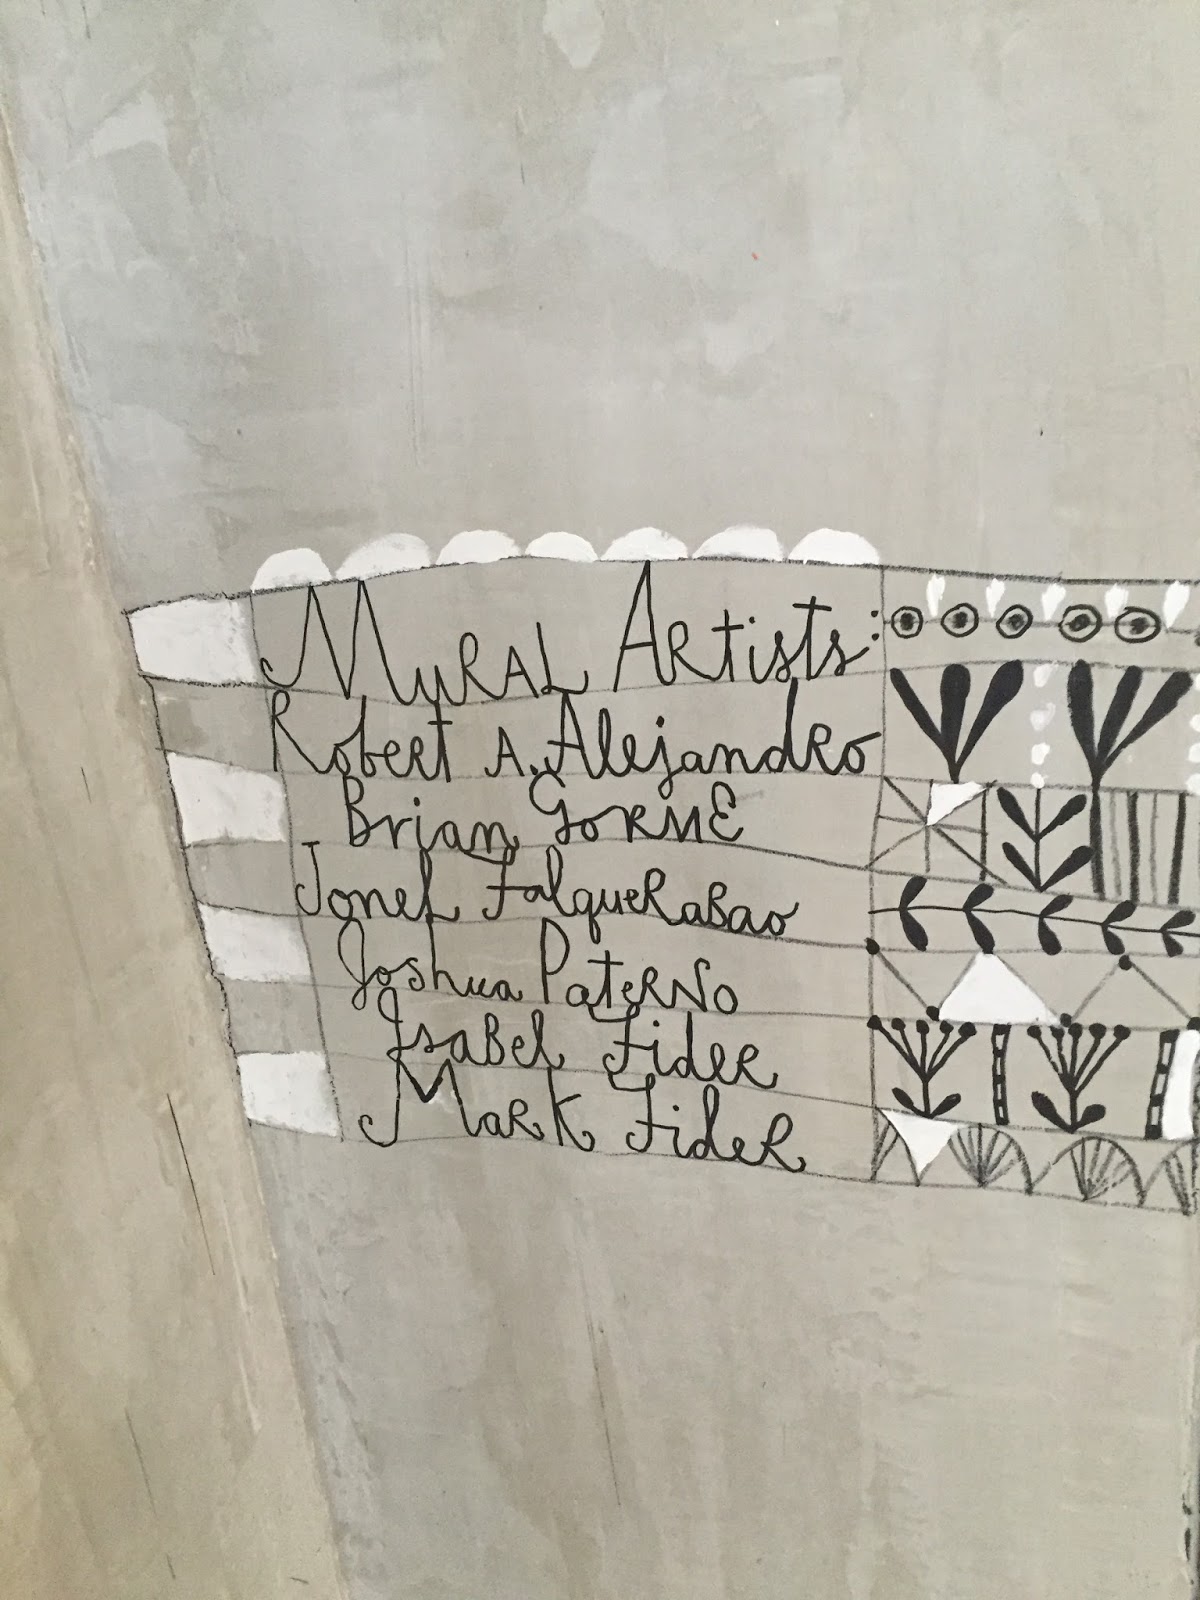 Mural Artists:
Robert A. Alejandro
Brian Gorme
Jonel Falquerabao
Joshua Paterno
Isabel Fider
Mark Fider